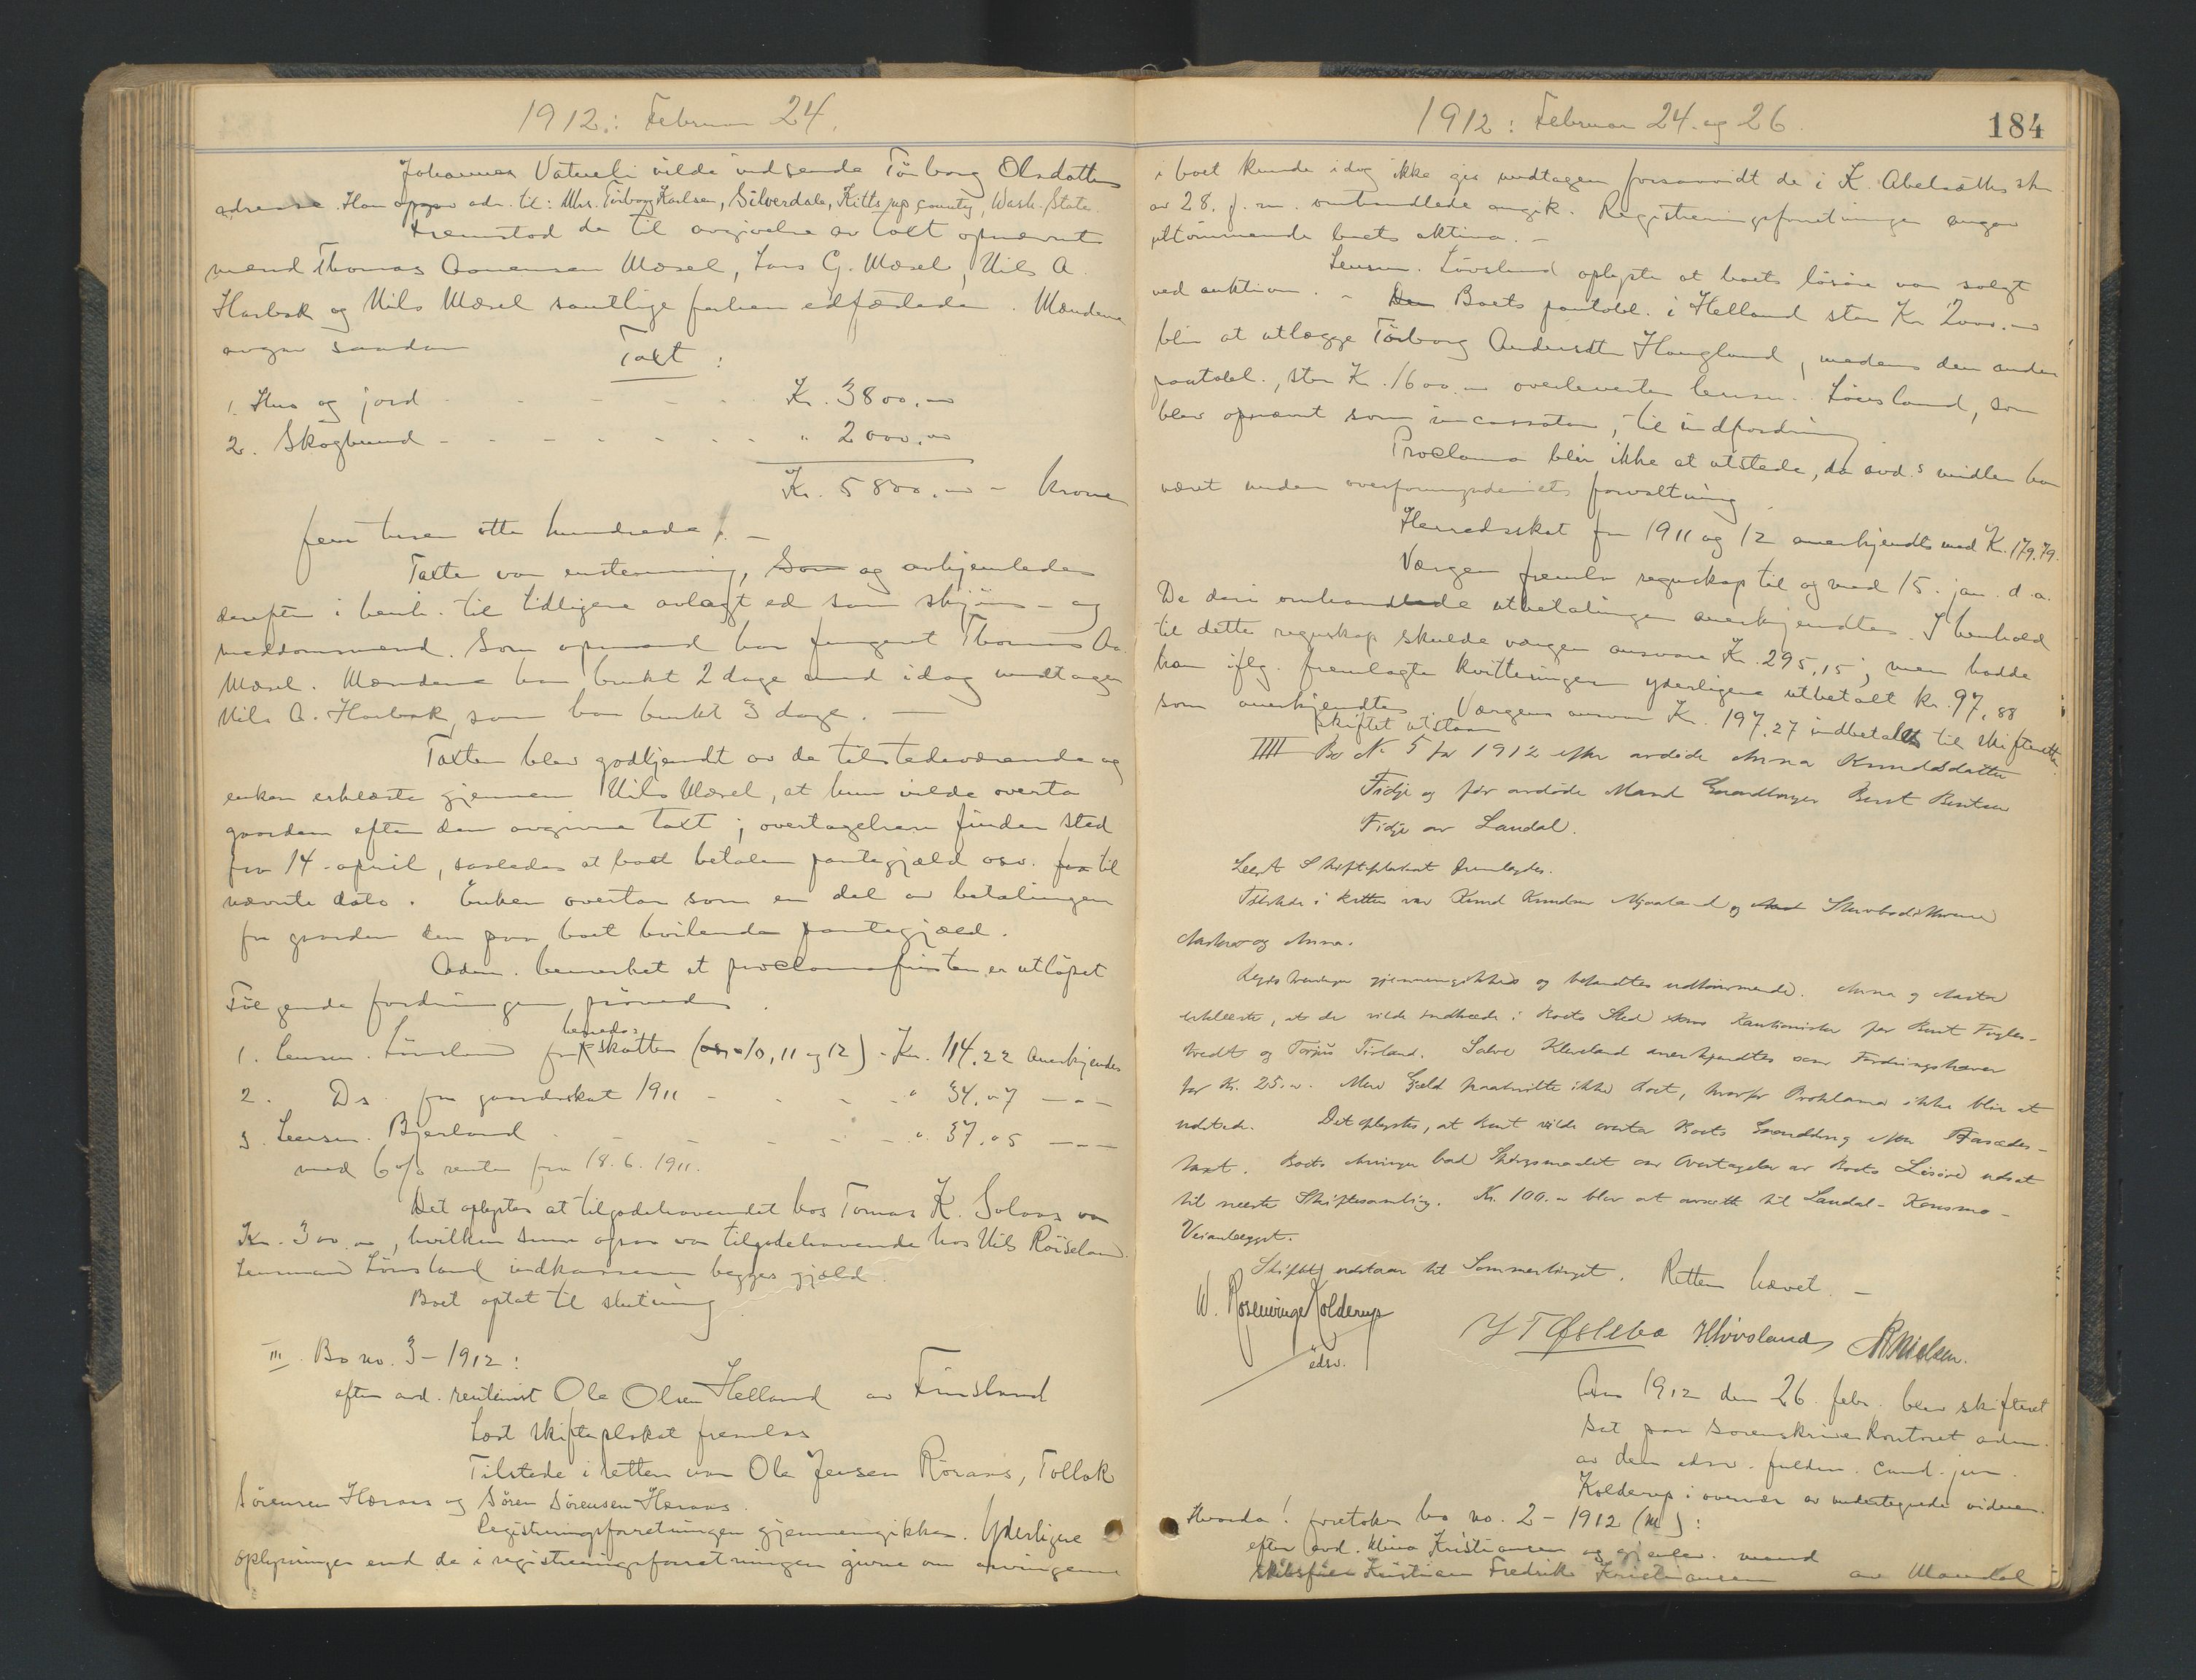 1912: Februar 24.
Johannes Vatneli vilde indsende Törborg Olsdatters
adresse. Han opgav adr. til: Mrs. Törborg Karlsen, Silverdale, Kitts/ap county, Wash. State.
Fremstod de til avgivelse av takt opnævnte
mænd Thomas Aanensen Mæsel, Lars G. Mæsel, Nils A.
Harbak og Nils Mæsel samtlige forhen edfæstede. Mændene
avgav saadan
Takt:
1. Hus og jord - - - - Kr. 3800.00
2. Skogbund - - - - - - " 2000.00
Kr. 5800.00 - kroner
fem tusen otte hundrede /. -
Takten var enstemmig, Som og avhjemledes
derefter i henh. til tidligere avlagt ed som skjöns- og
meddomsmænd. Som opmand har fungert Thomas Aa.
Mæsel. Mændene har brukt 2 dage med idag undtagen
Nils A. Harbak, som har brukt 3 dage. -
Takten blev godkjendt av de tilstedeværende og
enken erklærte gjennem Nils Mæsel, at hun vilde overta
gaarden efter den avgivne takt; overtagelsen finder sted
fra 14. april, saaledes at boet betaler pantegjæld osv. fra til
nævnte dato. Enken overtar som en del av betalingen
for gaarden den paa boet hvilende pantegjæld.
Adm. bemerket at proclamafristen er utlöpet
Fölgende fordringer prövedes.
1. Lensm. Lövsland for herredsskatten (09, 10, 11 og 12) - Kr. 114.22 Anerkjendes
2. Ds. for gaardsskat 1911 - - - - " 34.07 - " -
3. Lensm. Bjerland - - - - - " 37.05 - " -
med 6 % renter fra 18.6.1911.
Det oplystes at tilgodehavendet hos Tomas K. Solaas var
Kr. 300.00, hvilken sum ogsaa var tilgodehavende hos Nils Röiseland.
Lensmand Lövsland indkasserer begges gjæld.
Boet optat til slutning
III. Bo no. 3 - 1912:
efter avd. rentenist Ole Olsen Helland av Finsland
Læst skifteplakat fremlas
Tilstede i retten var Ole Jensen Röraas, Tollak
Sörensen Hæraas og Sören Sörensen Hæraas.
Registreringsforretningen gjennemgikkes. Yderligere
oplysninger end de i registreringsforretningen givne om arvingerne
1912: Februar 24. og 26.
184
i boet kunde idag ikke gis undtagen forsaavidt de i K. Abelsæths skr.
av 28. f. m. omhandlede angik. Registreringsforretningen angav
uttömmende boets aktiva. -
Lensm. Lövsland oplyste at boets lösöre var solgt
ved auktion. - Den Boets pantobl. i Helland stor Kr. 2000.00
blir at utlægge Törborg Andersdtr Haugland, medens den anden
pantobl., stor Kr. 1600.00 overleverte lensm. Lövsland, som
blev opnævnt som incassator, til indfordring
Proclama blir ikke at utstede, da avd.s midler har
været under overformynderiets forvaltning
Herredsskat for 1911 og 12 anerkjendtes med Kr. 179.79.
Værgen fremla regnskap til og med 15. jan. d.a.
De deri omhandlede utbetalinger anerkjendtes. I henhold
til dette regnskap skulde værgen ansvare Kr. 295,15; men hadde
han iflg. fremlagte kvitteringer yderligere utbetalt kr. 97,88
som anerkjendtes. Værgens ansvar Kr. 197.27 indbetaltes til skifteretten.
Skiftet utstaar
IIII Bo N. 5 for 1912 efter avdöde Anna Knudsdatter
Fidje og för avdöde Mand Gaardbruger Bent Bentsen
Fidje av Laudal.
Læst Skifteplakat fremlagdes.
Tilstede i Retten var Knud Knudsen Mjaaland og Aast Skovbodithorne
Aasta og Anna.
Registreringen gjennemgikkes og befandtes udtömmende. Anna og Aasta
erklærte, at de vilde indtræde i Boets Sted som Kautionister for Bent Fugle-
tvedt og Torjus Tisland. Salve Kleveland anerkjendtes som Fordringshaver
for Kr. 25.00. Mere Gjæld paahvilte ikke Boet, hvorfor Proklama ikke blir at
udstede. Det oplystes, at Bent vilde overta Boets Gaardbrug efter Aasædes-
taxt. Boets Arvinger bad Skjönsmaalet om Overtagelse av Boets Lösöre udsat
til næste Skiftesamling. Kr. 100.00 blev at avsætte til Laudal - Konsmo -
Veianlægget.
Skiftet udstaar til Sommertinget. Retten hævet. -
W. Rosenvinge Kolderup
edsv.
Y T Øslebø HLövsland ANielsen.
Aar 1912 den 26. febr. blev skifteret
sat paa sorenskriverkontoret adm.
av den edsv. fuldm. cand. jur.
Kolderup i overvær av undertegnede vidner.
Hvorda! foretokes bo no. 2 - 1912 (M):
efter avd. Mina Kristiansen og gjenlev. mand
skibsförer Kristian Fredrik Kristiansen av Mandal